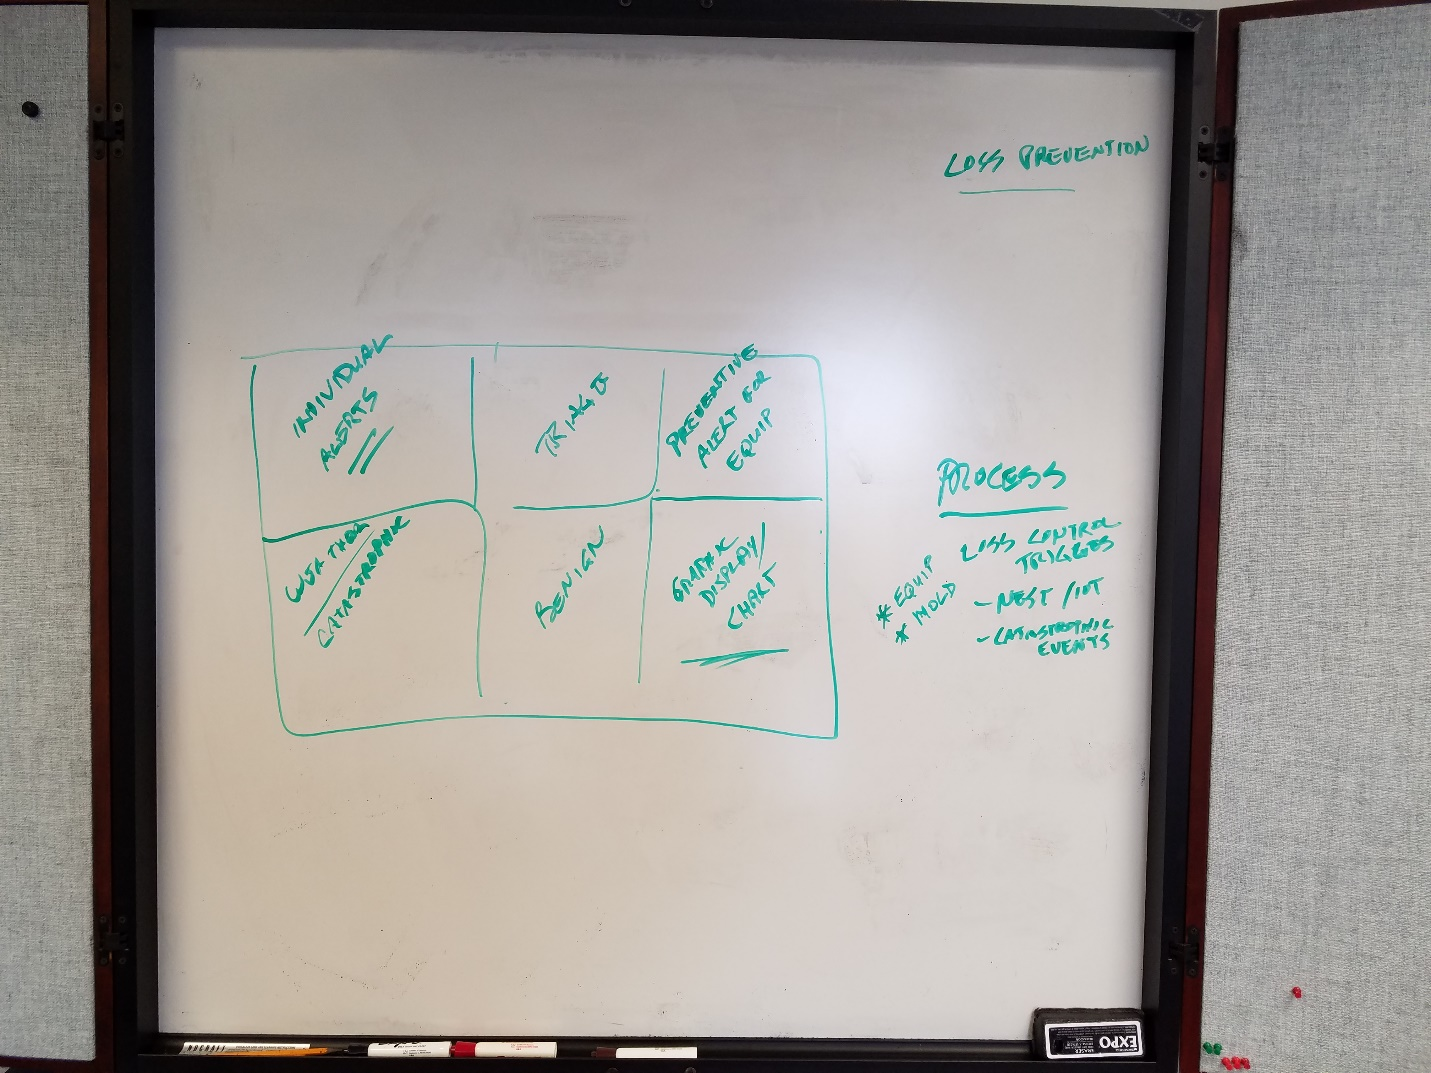 LOSS PREVENTION
INDIVIDUAL
ALERTS
TRIAGE
PREVENTIVE
ALERT FOR
EQUIP
WEATHER
CATASTROPHIC
BENIGN
GRAPHIC
DISPLAY/
CHART
PROCESS
LOSS CONTROL
TRIGGERS
- NEST / IOT
- CATASTROPHIC
EVENTS
* EQUIP
* MOLD
EXPO
ERASER